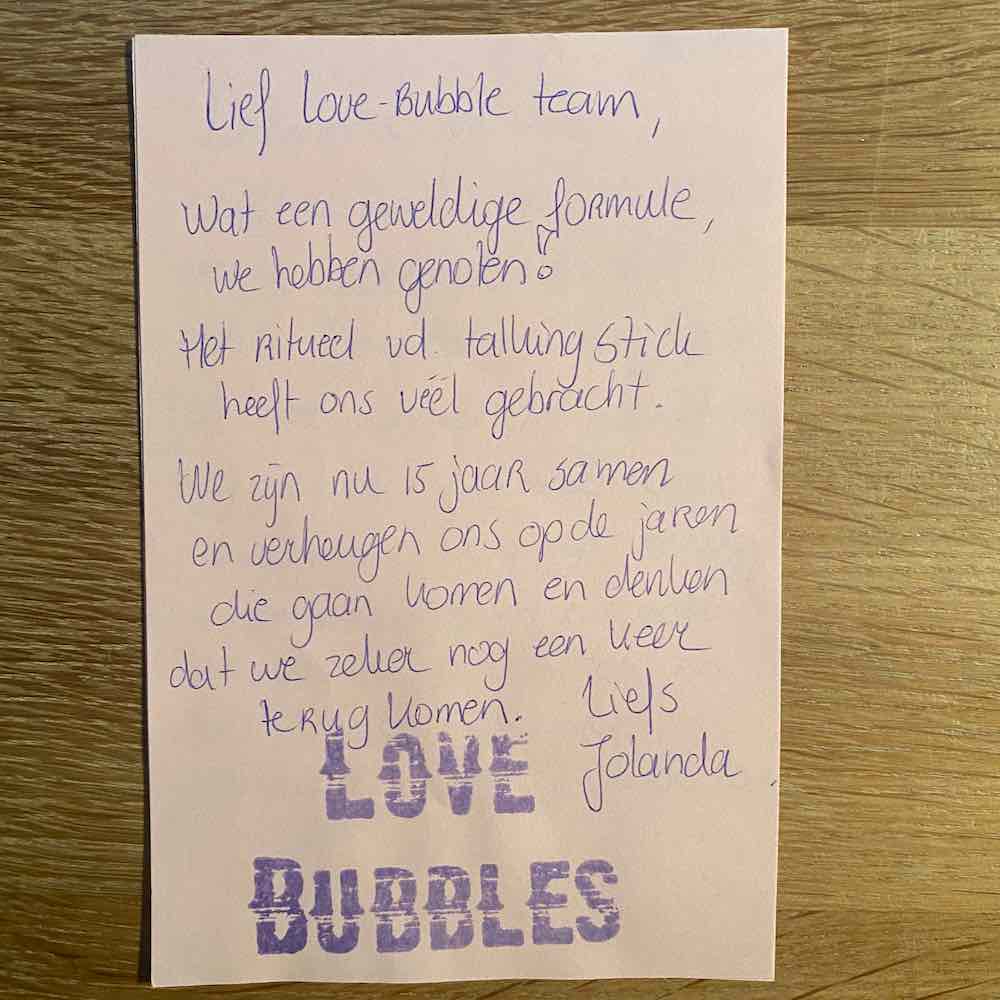 Lief Love-Bubble team,
Wat een geweldige formule,
we hebben genoten!
Het ritueel vd. talking stick
heeft ons véél gebracht.
We zijn nu 15 jaar samen
en verheugen ons op de jaren
die gaan komen en denken
dat we zeker nog een keer
terug komen. Liefs
Jolanda
LOVE
BUBBLES